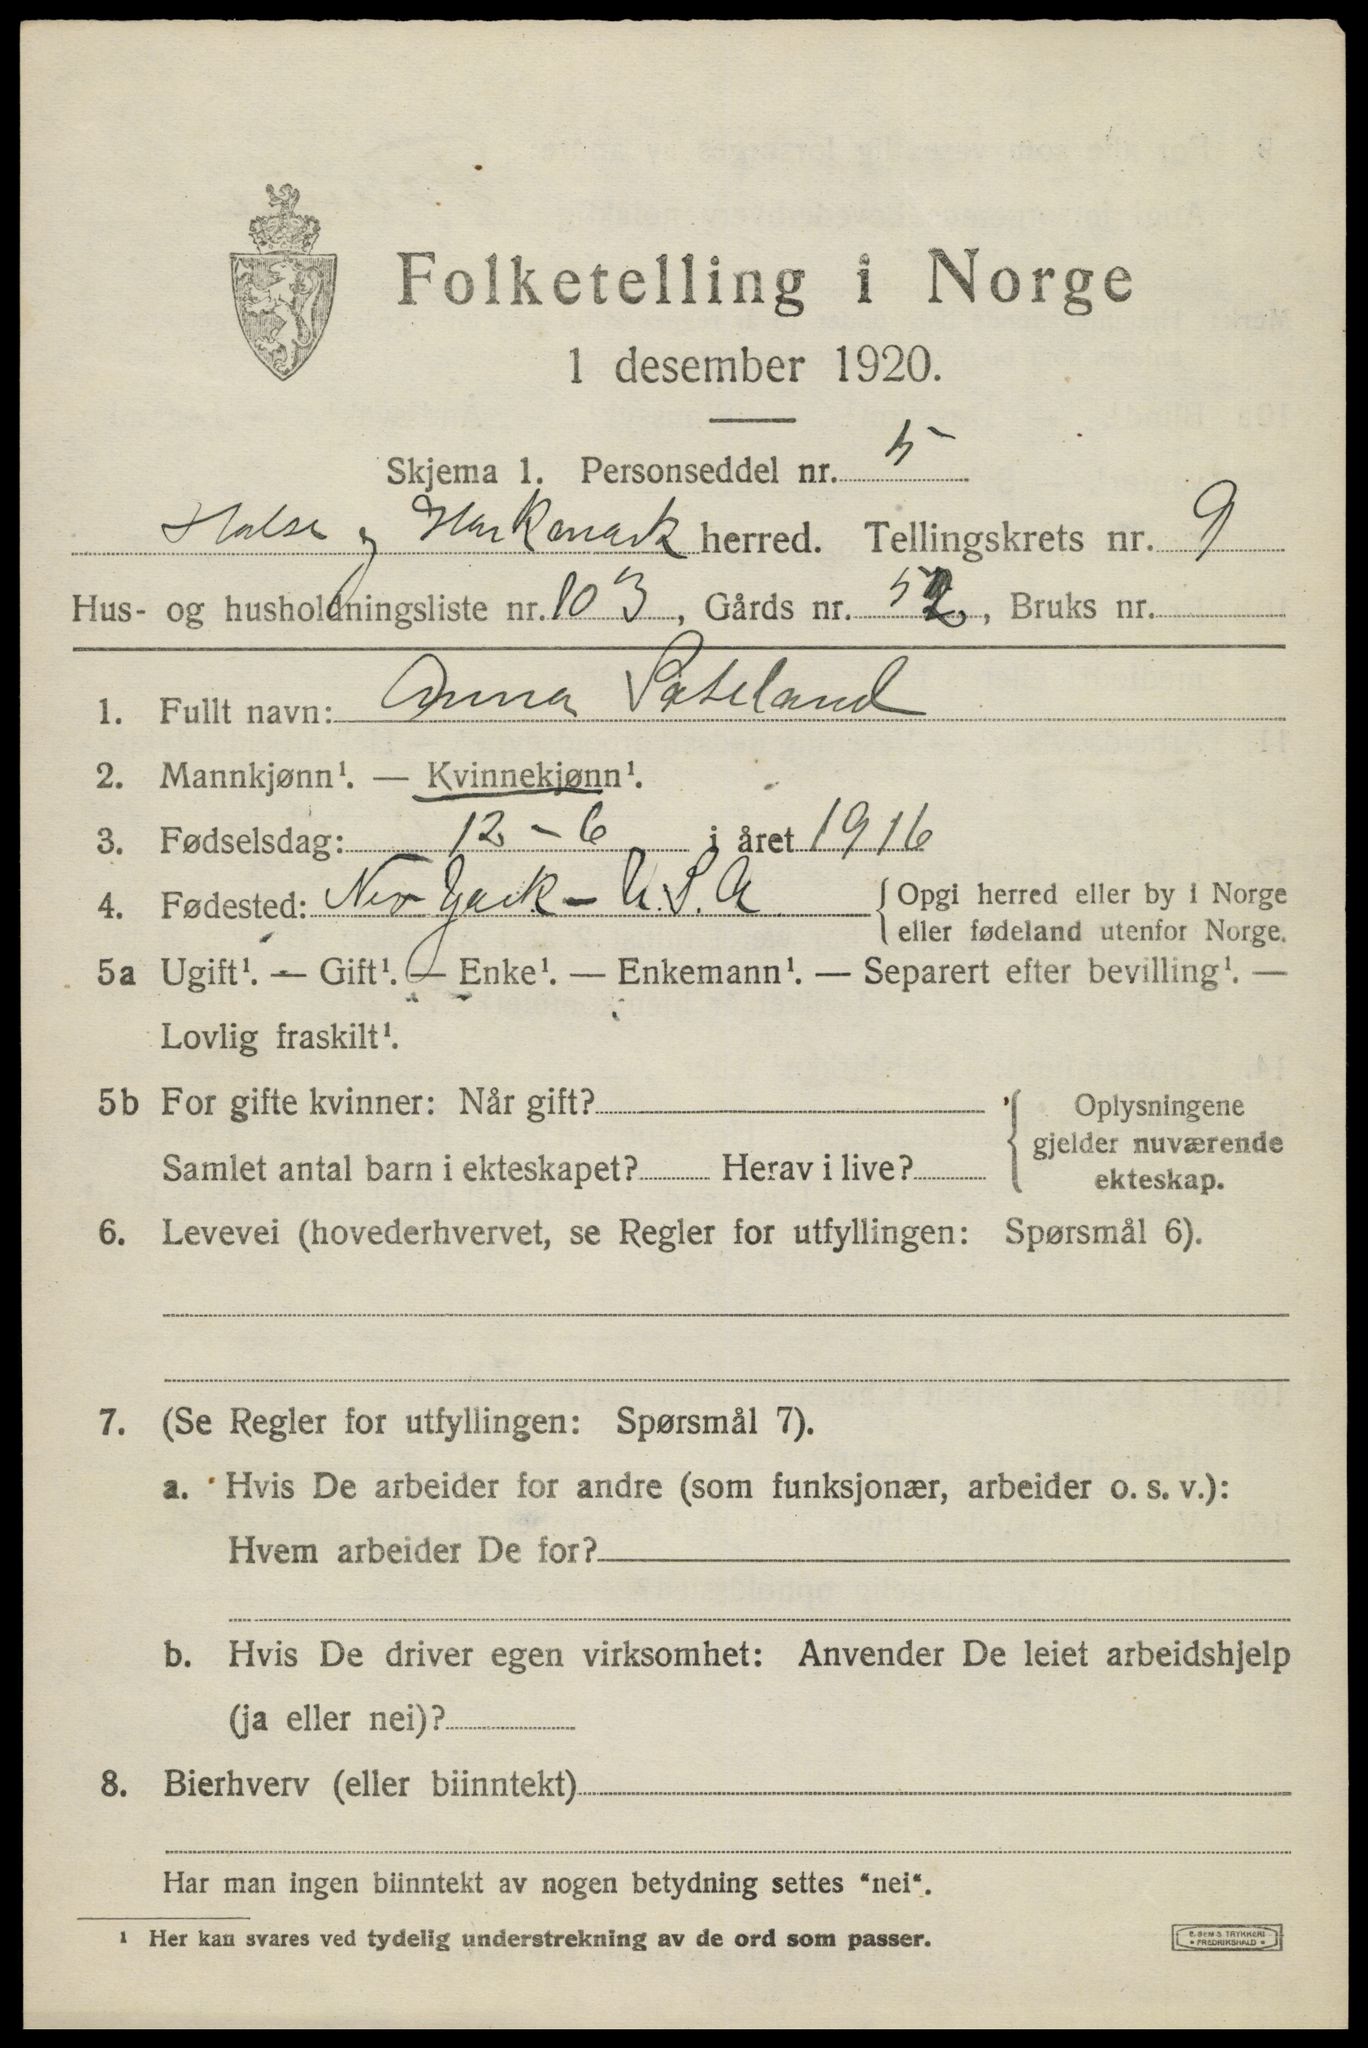 Folketelling i Norge
1 desember 1920.
Skjema 1. Personseddel nr. 5
Halse og Harkmark herred. Tellingskrets nr. 9
Hus- og husholdningsliste nr. 103, Gårds nr. 52, Bruks nr.
1. Fullt navn: Anna
2. Mannkjønn¹. — Kvinnekjønn¹.
3. Fødselsdag: 12 - 6 i året 1916
4. Fødested: New York - U.S.A {Opgi herred eller by i Norge
eller fødeland utenfor Norge.
5a Ugift¹. — Gift¹. — Enke¹. — Enkemann¹. — Separert efter bevilling¹. —
Lovlig fraskilt¹.
5b For gifte kvinner: Når gift? { Oplysningene
gjelder nuværende
Samlet antal barn i ekteskapet? Herav i live? ekteskap.
6. Levevei (hovederhvervet, se Regler for utfyllingen: Spørsmål 6).
7. (Se Regler for utfyllingen: Spørsmål 7).
a. Hvis De arbeider for andre (som funksjonær, arbeider o. s. v.):
Hvem arbeider De for?
b. Hvis De driver egen virksomhet: Anvender De leiet arbeidshjelp
(ja eller nei)?
8. Bierhverv (eller biinntekt)
Har man ingen biinntekt av nogen betydning settes "nei".
¹ Her kan svares ved tydelig understrekning av de ord som passer.
E. SEM'S TRYKKERI
• FREDRIKSHALD •